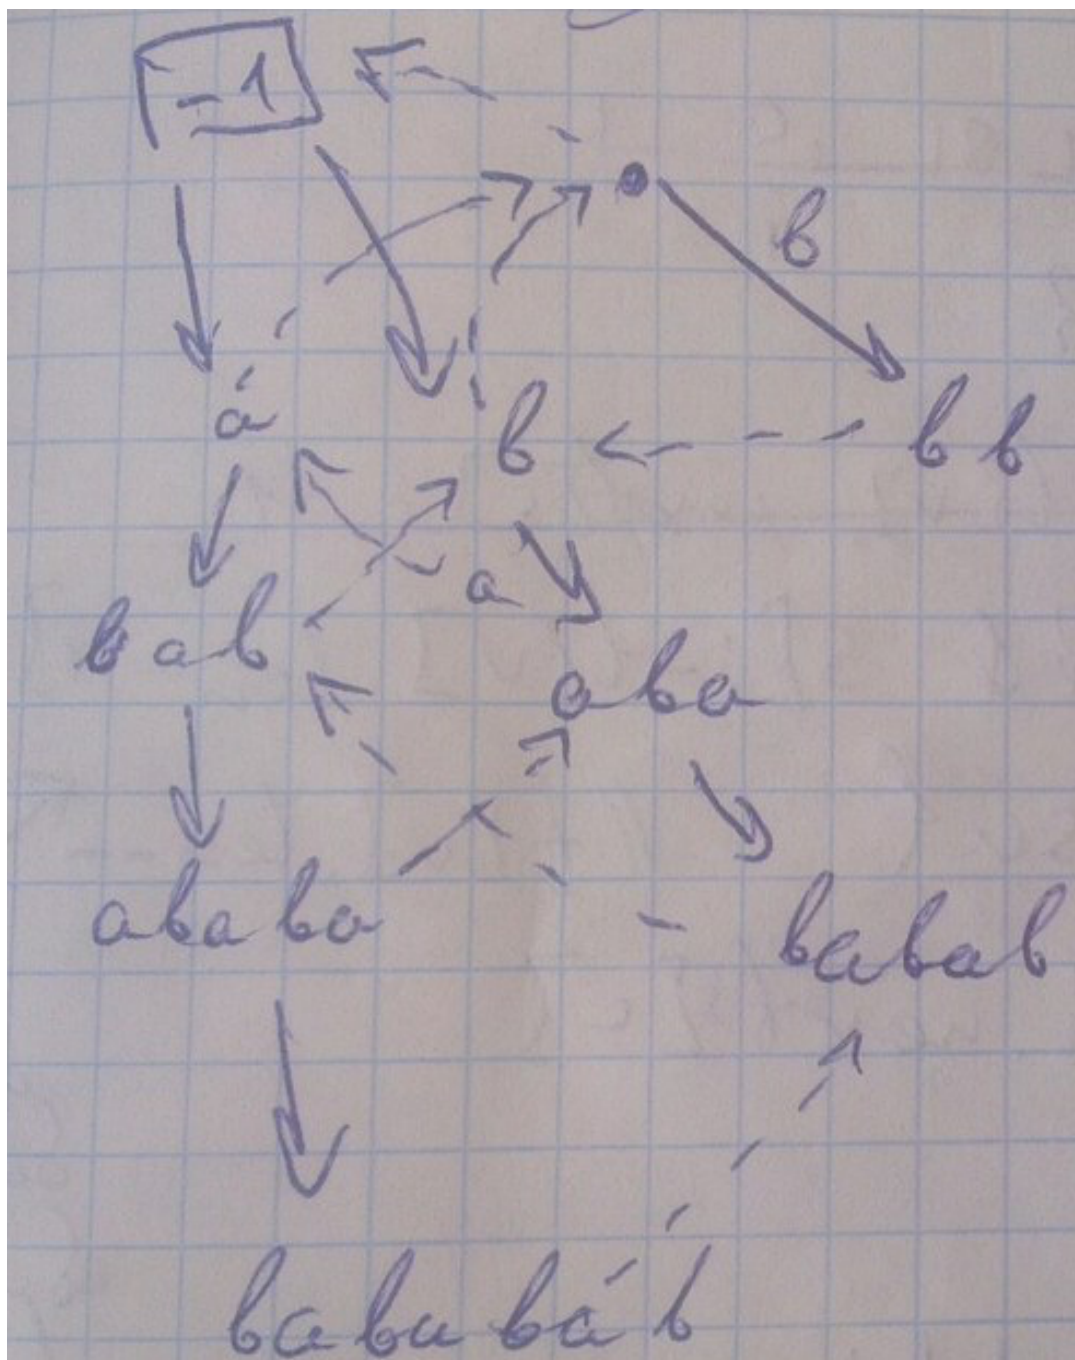 -1
b
a
b
bb
a
bab
aba
ababa
babab
bababab